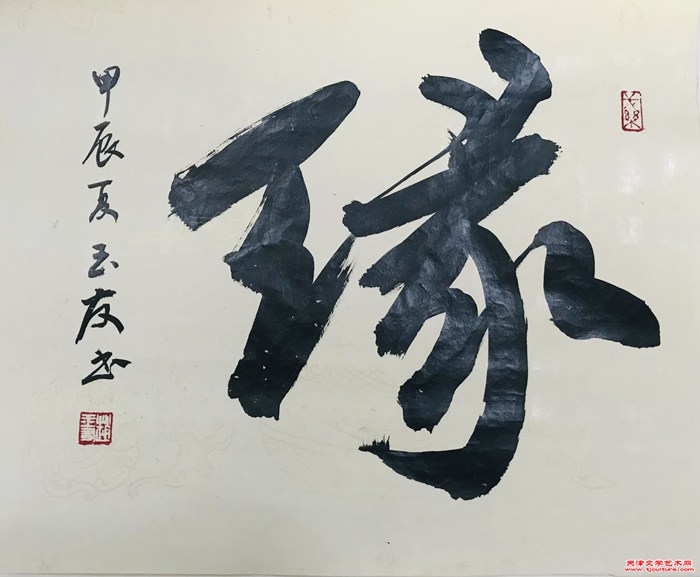 缘
甲辰夏玉友书
天津文学艺术网
www.tjculture.com